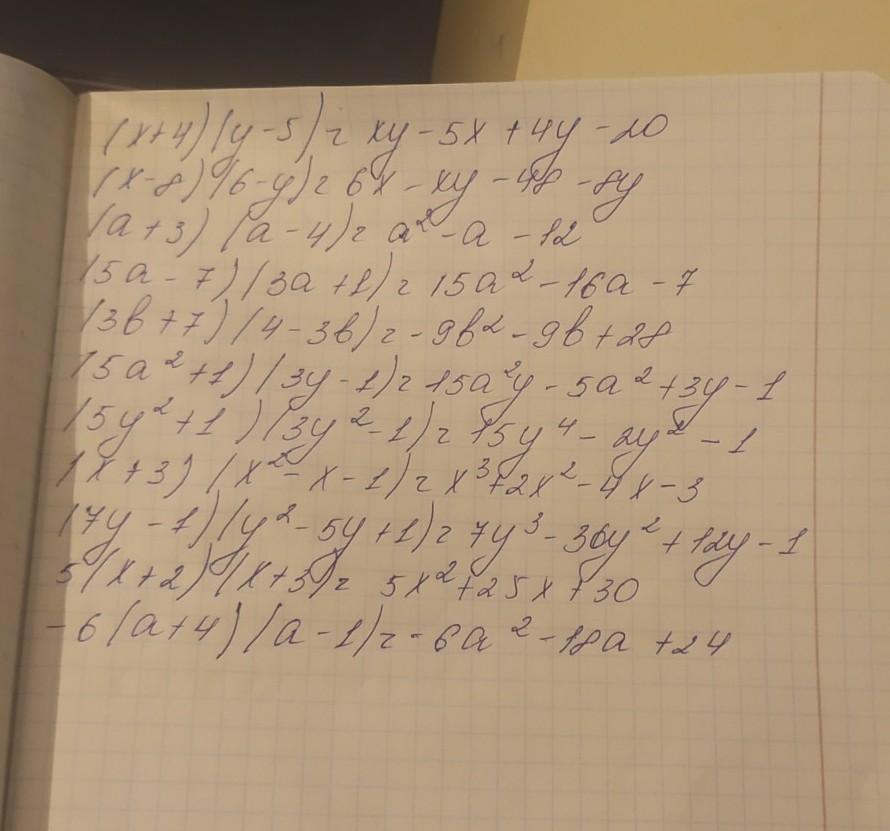 (x+4)(y-5)= xy-5x+4y-20
(x-8)(6-y)= 6x-xy-48-8y
(a+3)(a-4)= a²-a-12
(5a-7)(3a+1)= 15a²-16a-7
(3b+7)(4-3b)= -9b²-9b+28
(5a²+1)(3y-1)= 15a²y-5a²+3y-1
(5y²+1)(3y²-1)= 15y⁴-2y²-1
(x+3)(x²-x-1)= x³+2x²-4x-3
(7y-1)(y²-5y+1)= 7y³-36y²+12y-1
5(x+2)(x+3)= 5x²+25x+30
-6(a+4)(a-1)= -6a²-18a+24